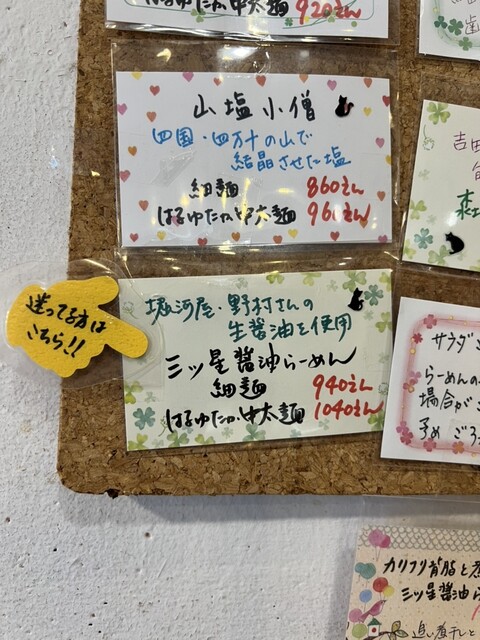 はるゆたか中太麺 920えん
山塩小僧
四国・四万十の山で
結晶させた塩
細麺 860えん
はるゆたか中太麺 960えん
迷ってる方は
こちら!!
堀河屋・野村さんの
生醤油を使用
三ッ星醤油らーめん
細麺 940えん
はるゆたか中太麺 1040えん
サラダ
らーめんの
場合が
予め ご
カリフリ背脂と
三ッ星醤油ら
追い煮干しと